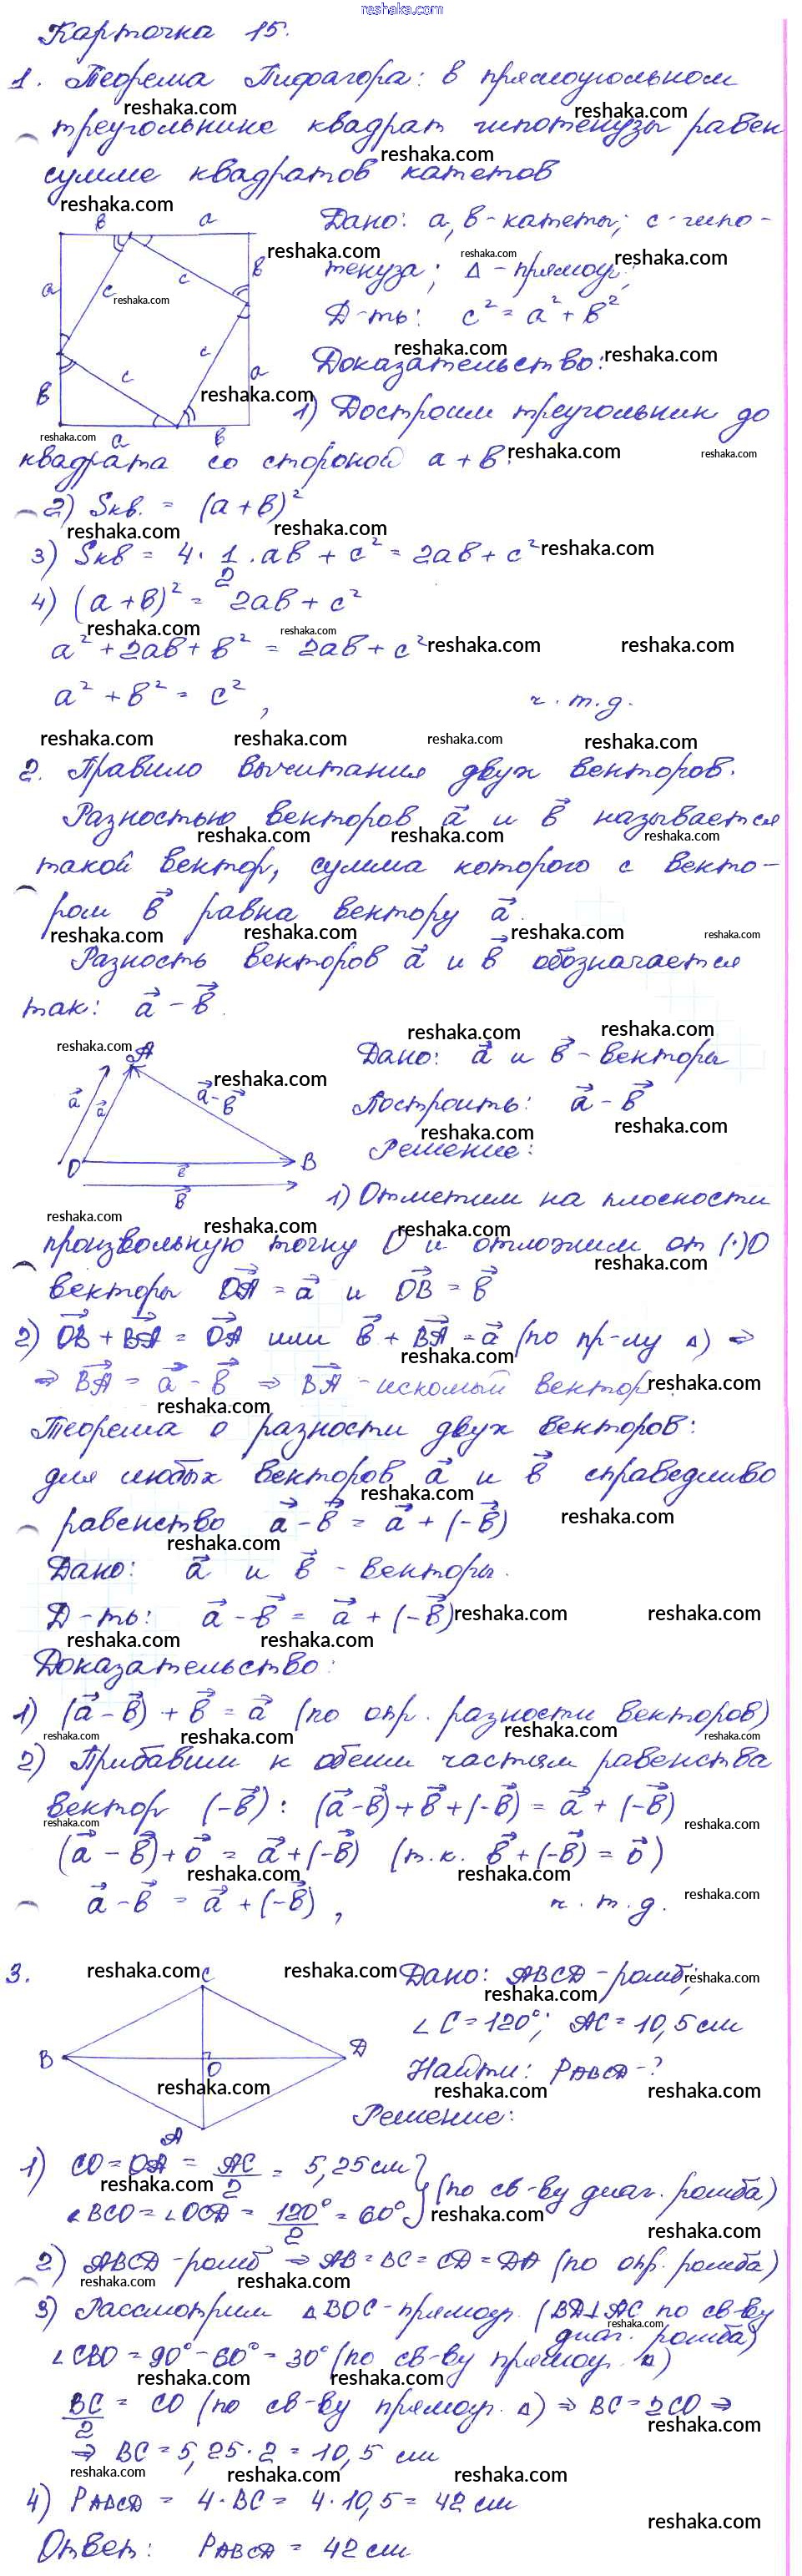 reshaka.com
Карточка 15.
1. Теорема Пифагора: в прямоугольном
треугольнике квадрат гипотенузы равен
сумме квадратов катетов
Дано: a, b - катеты; c - гипо-
тенуза; Δ - прямоуг.;
Д-ть: c² = a² + b²
Доказательство:
1) Достроим треугольник до
квадрата со стороной a + b.
2) Sкв. = (a + b)²
3) Sкв = 4 · 1/2 · ab + c² = 2ab + c²
4) (a + b)² = 2ab + c²
a² + 2ab + b² = 2ab + c²
a² + b² = c², ч.т.д.
2. Правило вычитания двух векторов.
Разностью векторов a⃗ и b⃗ называется
такой вектор, сумма которого с векто-
ром b⃗ равна вектору a⃗.
Разность векторов a⃗ и b⃗ обозначается
так: a⃗ - b⃗.
Дано: a⃗ и b⃗ - векторы
Построить: a⃗ - b⃗
Решение:
1) Отметим на плоскости
произвольную точку O и отложим от (·)O
векторы OA⃗ = a⃗ и OB⃗ = b⃗
2) OB⃗ + BA⃗ = OA⃗ или b⃗ + BA⃗ = a⃗ (по пр-лу Δ) ⇒
⇒ BA⃗ = a⃗ - b⃗ ⇒ BA⃗ - искомый вектор
Теорема о разности двух векторов:
для любых векторов a⃗ и b⃗ справедливо
равенство a⃗ - b⃗ = a⃗ + (-b⃗)
Дано: a⃗ и b⃗ - векторы.
Д-ть: a⃗ - b⃗ = a⃗ + (-b⃗)
Доказательство:
1) (a⃗ - b⃗) + b⃗ = a⃗ (по опр. разности векторов)
2) Прибавим к обеим частям равенства
вектор (-b⃗): (a⃗ - b⃗) + b⃗ + (-b⃗) = a⃗ + (-b⃗)
(a⃗ - b⃗) + 0⃗ = a⃗ + (-b⃗) (т.к. b⃗ + (-b⃗) = 0⃗)
a⃗ - b⃗ = a⃗ + (-b⃗), ч.т.д.
3. Дано: ABCD - ромб;
∠C = 120°; AC = 10,5 см
Найти: PABCD - ?
Решение:
1) CO = OA = AC/2 = 5,25 см
∠BCO = ∠OCD = 120°/2 = 60° } (по св-ву диаг. ромба)
2) ABCD - ромб ⇒ AB = BC = CD = DA (по опр. ромба)
3) Рассмотрим ΔBOC - прямоуг. (BD⊥AC по св-ву
диаг. ромба)
∠CBO = 90° - 60° = 30° (по св-ву прямоуг. Δ)
BC/2 = CO (по св-ву прямоуг. Δ) ⇒ BC = 2CO ⇒
⇒ BC = 5,25 · 2 = 10,5 см
4) PABCD = 4 · BC = 4 · 10,5 = 42 см
Ответ: PABCD = 42 см